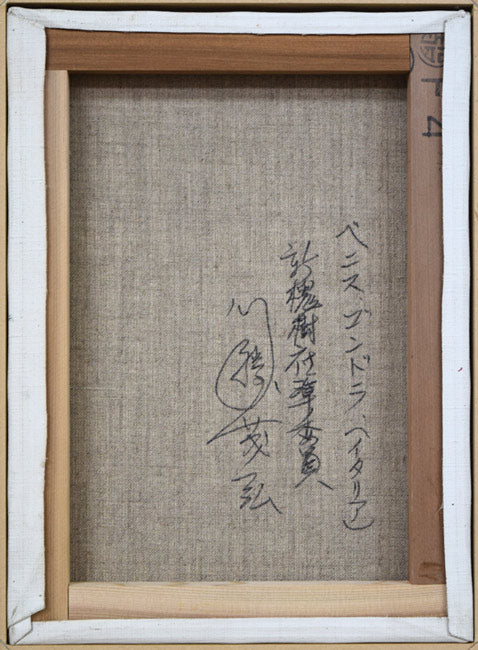 F 4
ベニス、ゴンドラ、(イタリア)
新槐樹社準委員
川 茂弘